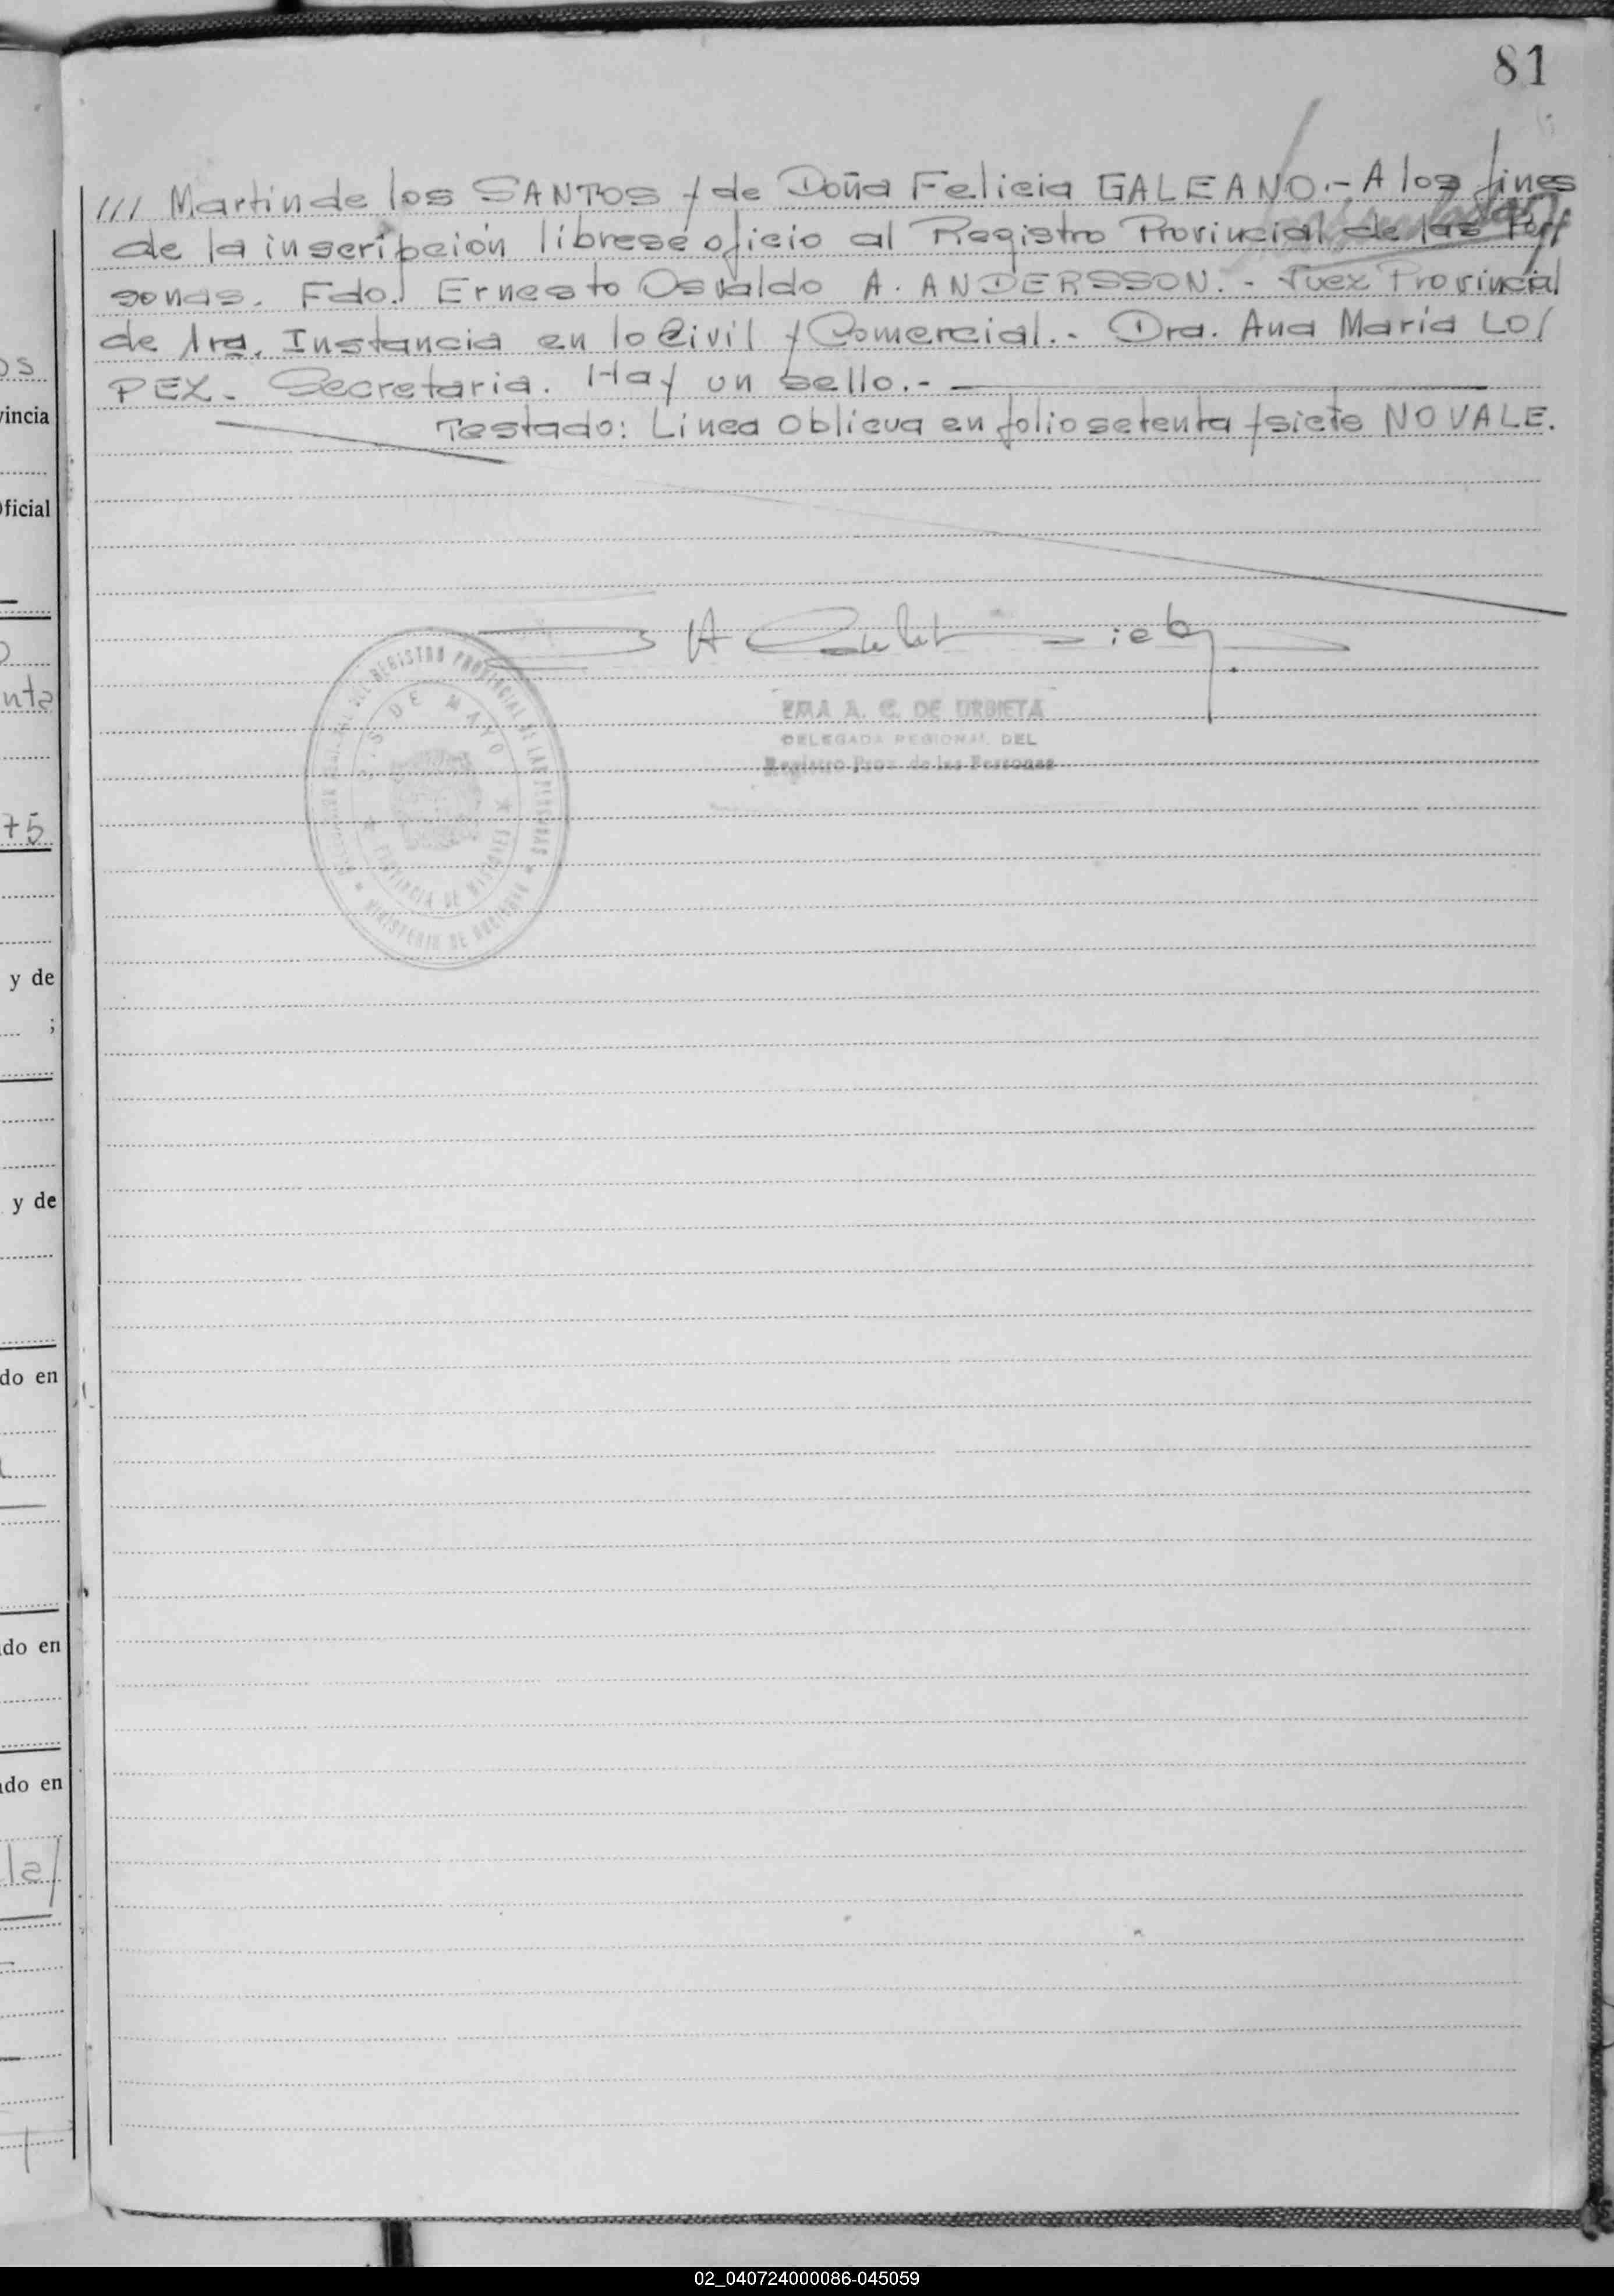 81
/// Martin de los SANTOS y de Doña Felicia GALEANO.- A los fines
de la inscripción librese oficio al Registro Provincial de las Per/
sonas. Fdo. Ernesto Osvaldo A. ANDERSSON.- Juez Provincial
de 1ra. Instancia en lo Civil y Comercial.- Dra. Ana María LO/
PEZ- Secretaria. Hay un sello.-
Testado: Linea Oblicua en folio setenta y siete NO VALE.
EMA A. C. DE URBIETA
DELEGADA REGIONAL DEL
Registro Prov. de las Personas
REGISTRO PROVINCIAL DE LAS PERSONAS
25 DE MAYO
PROVINCIA DE MISIONES
MINISTERIO DE GOBIERNO
os
vincia
Oficial
nta
75
y de
;
y de
do en
do en
do en
la/
02_040724000086-045059